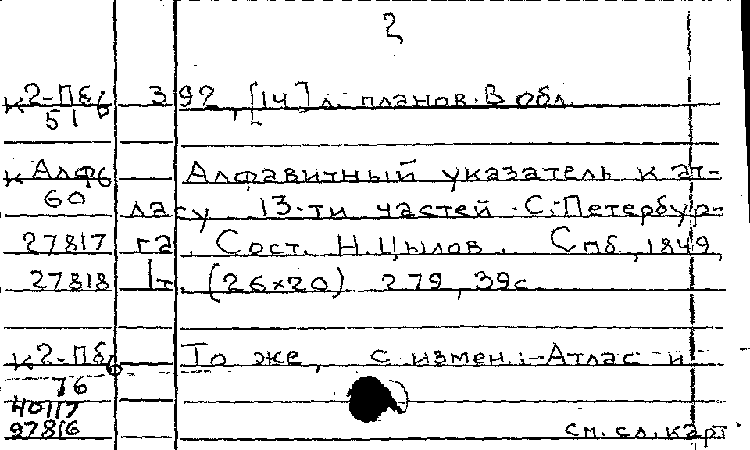 2
К2-Пб/6 392, [14] л. планов. В обл.
51
К Алф6 Алфавитный указатель к ат-
60 ласу 13-ти частей С.-Петербур-
27817 га. Сост. Н. Цылов. Спб, 1849,
27818 1т. (26×20) 279, 39с.
К2-Пб/6 То же, с измен.: Атлас и
76
40117
97816 см. сл. карт